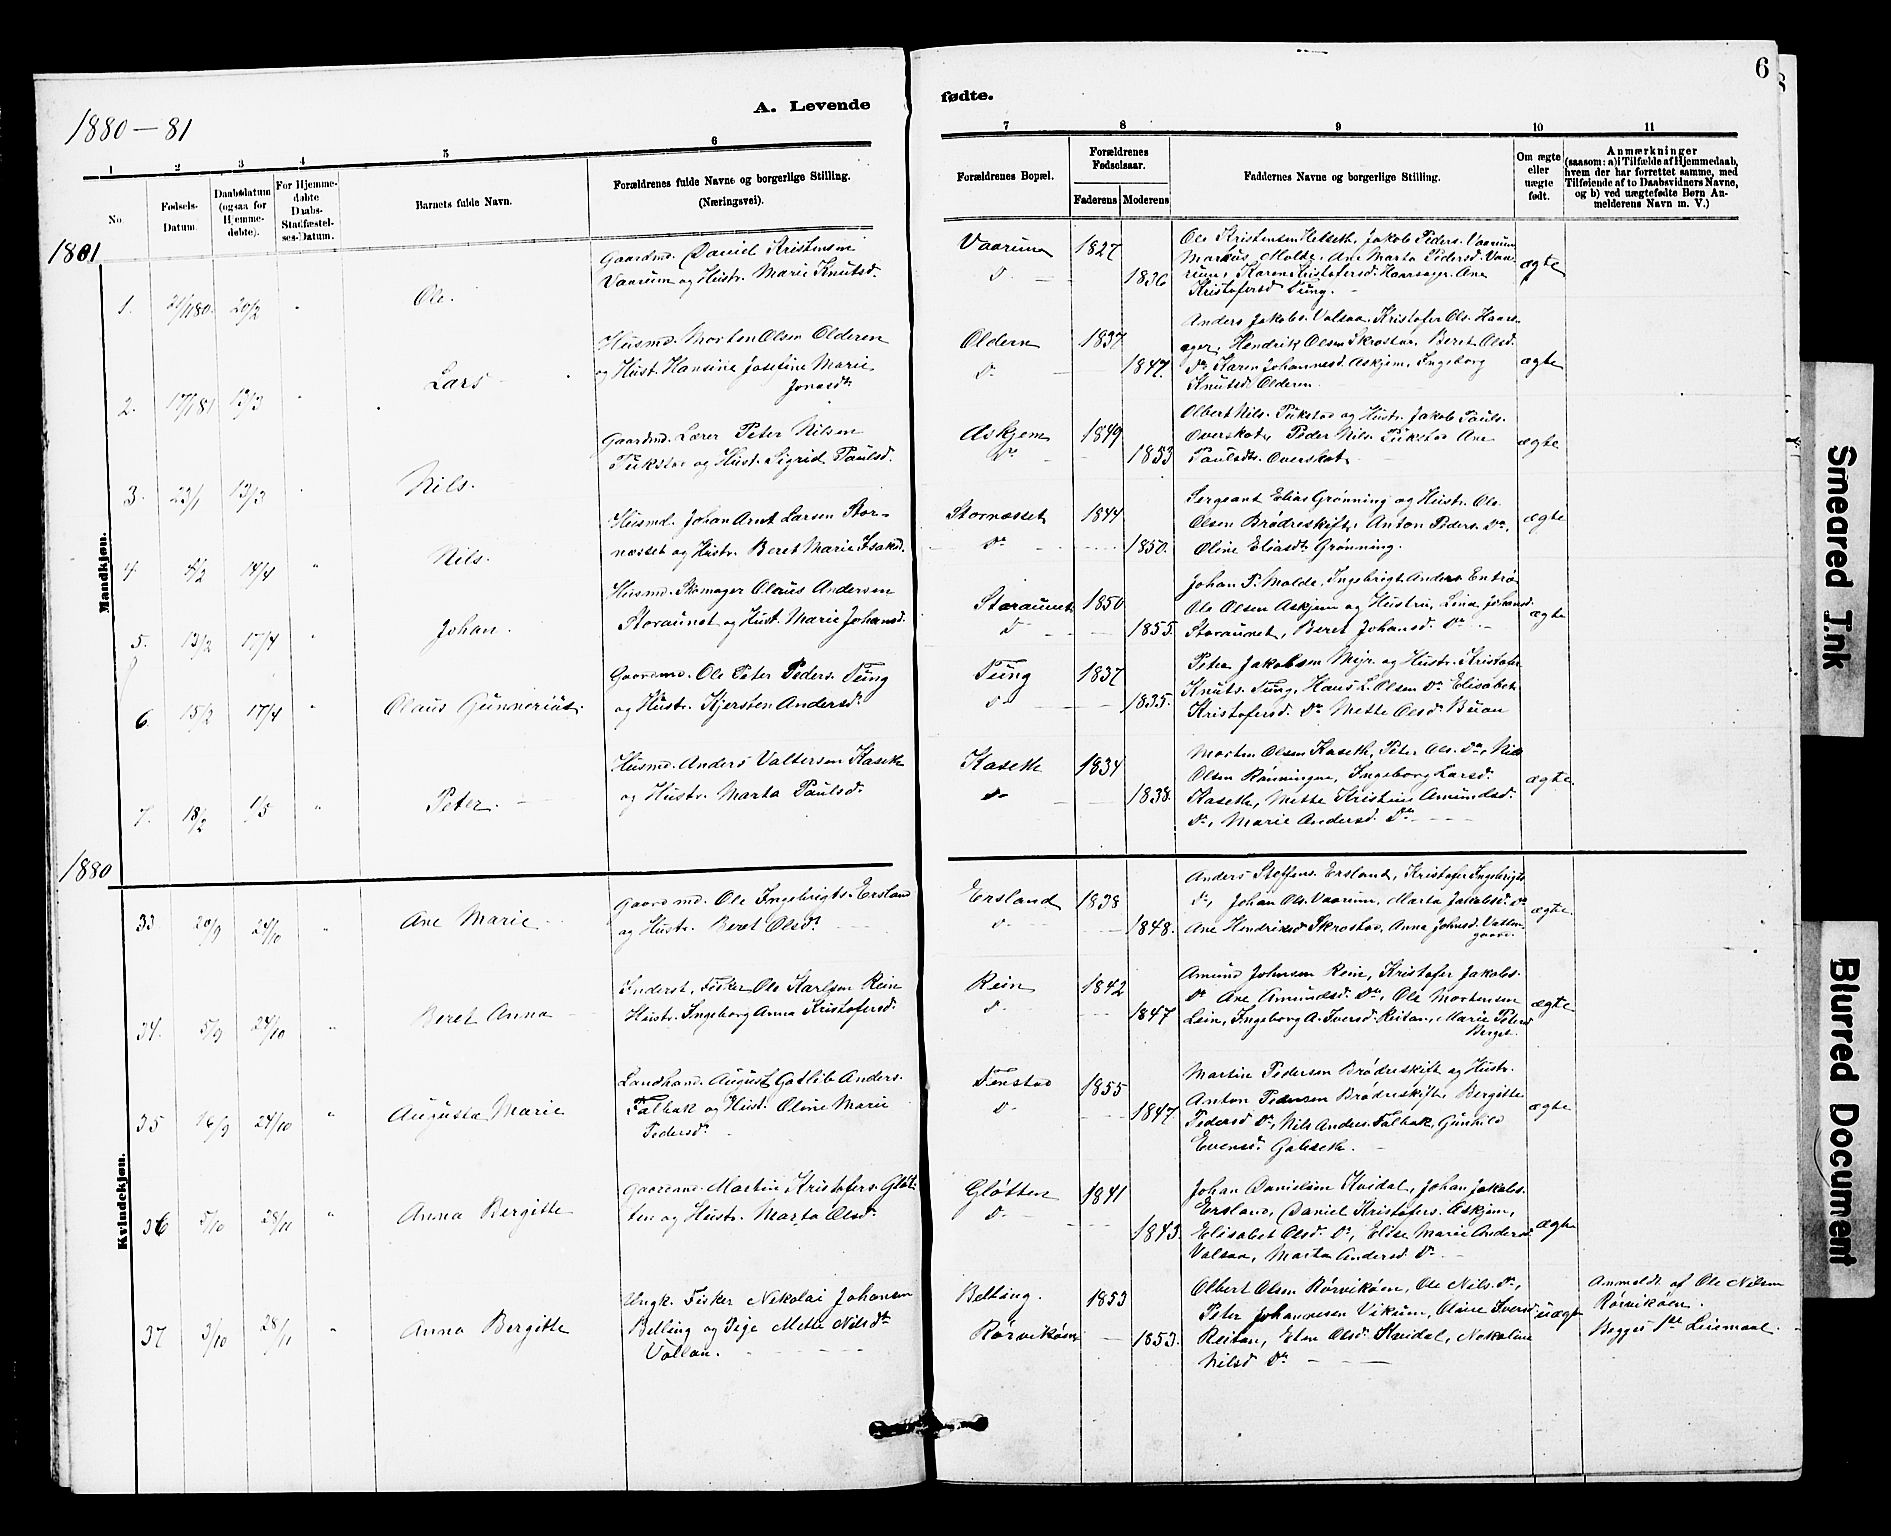 6
A. Levende
fødte.
1880-81
1 2 3 4 5 6 7 8 9 10 11
No.
Fødsels-
Datum.
Daabsdatum
(ogsaa for
Hjemme-
døbte).
For Hjemme-
døbte
Daabs-
Stadfæstel-
ses-Datum.
Barnets fulde Navn.
Forældrenes fulde Navne og borgerlige Stilling.
(Næringsvei).
Forældrenes Bopæl.
Forældrenes
Fødselsaar.
Faderens
Moderens
Faddernes Navne og borgerlige Stilling.
Om ægte
eller
uægte
født.
Anmærkninger
(saasom: a) i Tilfælde af Hjemmedaab,
hvem der har forrettet samme, med
Tilføiende af to Daabsvidners Navne,
og b) ved uægtefødte Børn An-
melderens Navn m. V.)
1881
Mandkjøn.
1. 20/2 " Ole.
Gaardmd. Daniel Kristensen
Vaarum og Hustr. Marie Knutsd.
Vaarum 1827
D° 1836
Ole Kristensen Helseth, Jakob Peders. Vaarum
Markus Molde, Ane Marta Pedersd. Vaa-
rum, Karen Kristofersd. Haarsager, Ane
Kristofersd. Tung.
ægte
2. 17/1 81 13/3 " Lars
Husmd. Morten Olsen Olderen
og Hust. Hansine Josefine Marie
Jonasdt.
Oldern 1837
D° 1847.
Anders Jakobs. Valsaa, Kristofer Ols. Haars-
ager, Hendrik Olsen Skrostad, Beret Olsd.
D°, Karen Johannesd. Askjem, Ingeborg
Knutsd. Olderen.
ægte
3. 23/1 13/3 " Nils.
Gaardmd. Lærer Peter Nilsen
og Hust. Sigrid Paulsd.
Askjem 1849
D° 1853
Olbert Nils. og Hustr. Jakob Pauls.
Overskot, Peder Nils. Ane
Paulsdt. Overskot
ægte
4. 18/4 " Nils.
Husmd. Johan Arnt Larsen Stor-
næsset og Hustr. Beret Marie Isakd.
Stornæsset 1844
D° 1850.
Sergeant Elias Grønning og Hustr. Ole
Olsen Brødreskift, Anton Peders. D°,
Oline Eliasdt. Grønning.
ægte
5. 13/2 17/4 " Johan.
Husmd. Skomager Olaus Andersen
Storaunet og Hust. Marie Johansd.
Storaunet 1850
D° 1855.
Johan P. Molde, Ingebrigt Anders.
Ole Olsen Askjem og Hustru, Lina Johansd.
Storaunet, Beret Johansd. D°
ægte
6 15/2 17/4 " Olaus Gunnerius.
Gaardmd. Ole Peter Peders. Tung
og Hustr. Kjersten Andersd.
Tung 1837
D° 1835.
Peter Jakobsen og Hustr. Kristofer
Knuts. Tung, Hans L. Olsen D° Elisabet
Kristofersd. D° Mette Olsd. Buan
7. 18/2 1/5 " Peter.
Husmd. Anders Valtersen Kaseth
og Hustr. Marta Paulsd.
Kaseth 1834
D° 1838.
Morten Olsen Kaseth, Peter Ols. D°, Nils
Olsen Rønningen, Ingeborg Larsd.
Kaseth, Mette Kristine Amundsd.
D°, Marie Andersd. D°
ægte
1880
Kvindekjøn.
33. 20/9 24/10 " Ane Marie
Gaardmd. Ole Ingebrigts. Ersland
og Hustr. Beret Olsdt.
Ersland 1838
D° 1848.
Anders Steffens. Ersland, Kristofer Ingebrigts.
D°, Johan Ols. Vaarum, Marta Jakobsd. D°
Ane Hendriksd. Skrostad, Anna Johnsd. Vatten-
gaard.
ægte
34. 5/9 24/10 " Beret Anna
Inderst, Fisker Ole Karlsen Rein
Hustr. Ingeborg Anna Kristofersd.
Rein 1842
D° 1847
Amund Johnsen Rein, Kristofer Jakobs.
D° Ane Amundsd. D°, Ole Mortensen
Lein, Ingeborg A. Iversd. Reitan, Marie Petersd.
Berget.
ægte
35 16/9 24/10 " Augusta Marie
Landhand. August Gotlib Anders.
Falbak og Hust. Oline Marie
Pedersdt.
1855
D° 1847.
Martin Pedersen Brødreskift og Hustr.
Anton Pedersen Brødreskift, Bergitte
Pedersd. D°, Nils Anders. Falbak, Gunhild
Evensdt.
ægte
36 5/10 28/11 " Anna Bergitte
Gaardmd. Martin Kristofers. Gløt-
ten og Hustr. Marta Olsdt.
Gløtten 1841
D° 1843.
Johan Danielsen Hvidal, Johan Jakobs.
Ersland, Daniel Kristofers. Askjem,
Elisabet Olsd. D°, Elise Marie Andersd.
Valsaa, Marta Andersd. D°
ægte
37 3/10 28/11 " Anna Bergitte
Ungk. Fisker Nekolai Johansen
Belling og Pige Mette Nilsdt.
Vollan.
Belling. 1853
Rørvikøien 1853.
Olbert Olsen Rørvikøien, Ole Nils. D°,
Peter Johannesen Vikum, Oline Iversd.
Reitan, Olsd. Hvidal, Nekoline
Nilsd. D°
uægte
Anmeldt af Ole Nilsen
Rørvikøien.
Begges 1ste Leiermaal.
Smeared Ink
Blurred Document